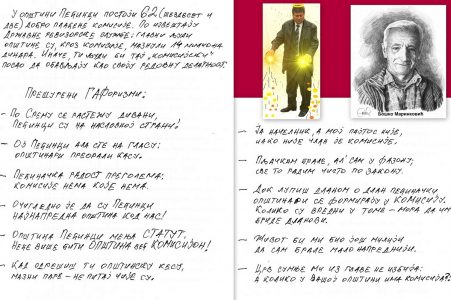 У општини Пећинци постоји 62 (шездесет и
две) добро плаћене комисије. По извештају
Државне ревизорске службе; гласни људи
општине су, кроз комисије, мазнули 19 милиона
динара. Иначе, ти људи би тај „комисијски"
посао да обављају као своју редовну делатност.
Прештурени ГАФоризми:
– По Срему се растежу дивани,
Пећинци су на насловној страни!
– Ој Пећинци ал сте на гласу;
општинари преорали касу.
– Пећиначка радост преголема;
комисије нема које нема.
– Очигледно је да су Пећинци
најнапредна општина код нас!
– Општина Пећинци мења СТАТУТ.
Неће више бити ОПШТИНА већ КОМИСИЈОН!
– Кад одрешиш ти општинску касу,
мазни паре – не питај чије су.
Бошко Маринковић
– Ја начелник, а мој пајтос није,
иако није члан је комисије.
– Плачком краде, ал' сам у фазону;
све то радим чисто по закону.
– Док лупиш дланом о длан пећиначки
општинари се формирају у КОМИСИЈУ.
Колико су вредни у томе – мора да им
бриде дланови.
– Живот би ми био још милији
да сам бар мало напреднији.
– Црв сумње ми из главе не избија:
а колико у Вашој општини има комисија?!